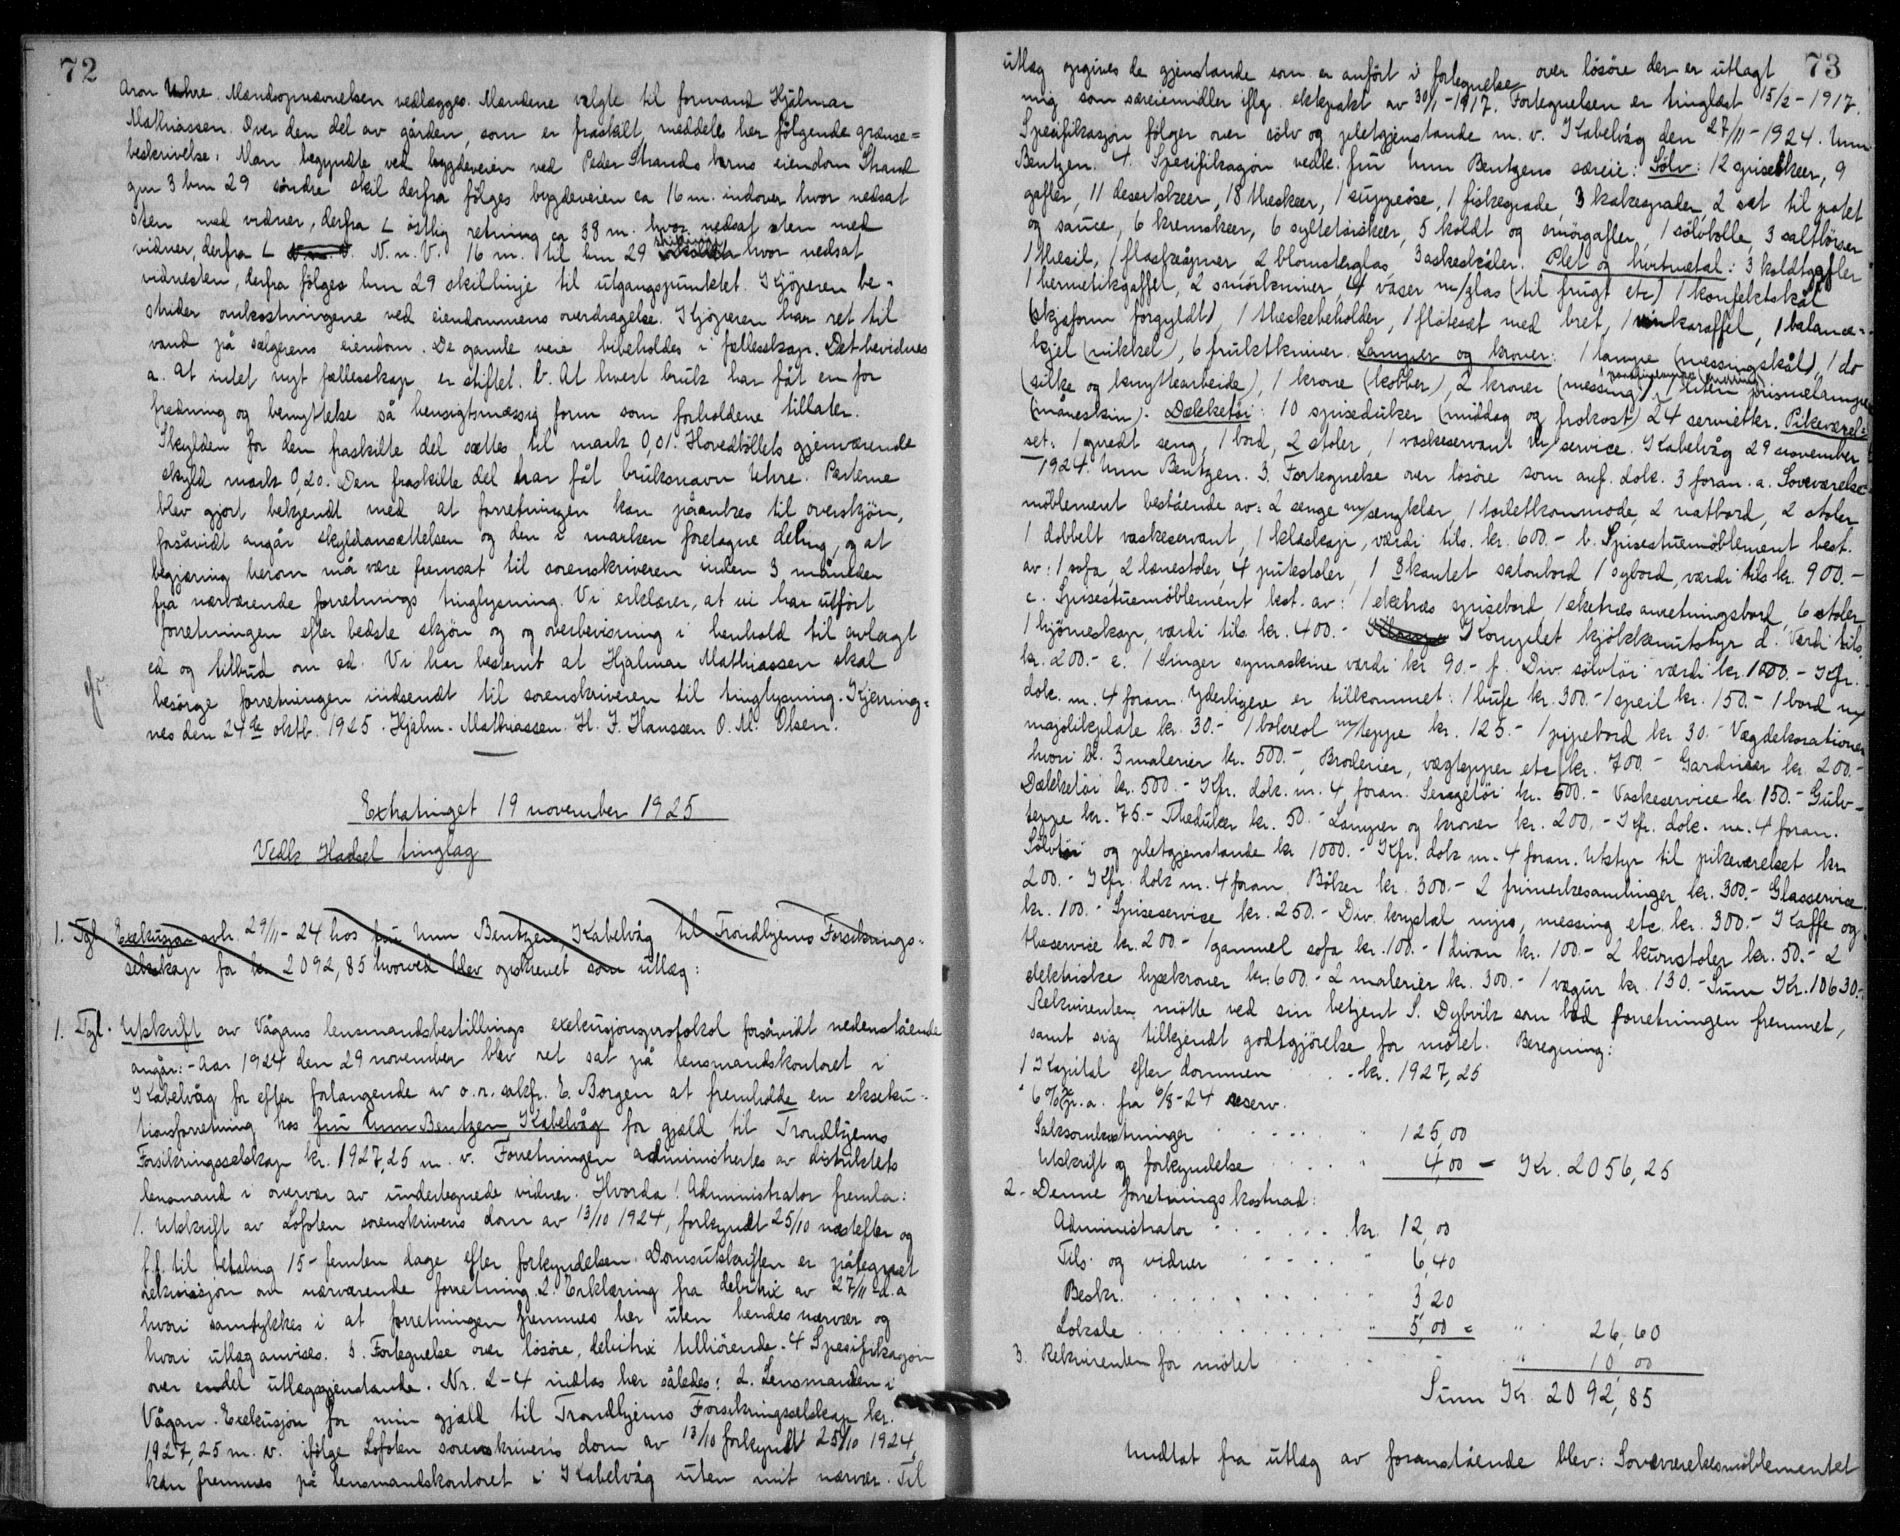 72
Aron Uhre. Mandsopnævnelsen vedlægges. Mændene valgte til formand Hjalmar
Mathiassen. Over den del av gården, som er fraskilt, meddeles her følgende grænse=
beskrivelse: Man begyndte ved bygdeveien ved Peder Strands barns eiendom Strand
gnr 3 bnr 29 söndre skil derfra følges bygdeveien ca 16 m. indover hvor nedsat
sten med vidner, derfra L östlig retning ca 38 m. hvor nedsat sten med
vidner, derfra L N. n. V. 16 m. til bnr 29 skillinje hvor nedsat
vidnesten, derfra følges bnr 29 skillinje til utgangspunktet. Kjöperen be-
strider omkostningene ved eiendommens overdragelse. Kjöperen har ret til
vand på sælgerens eiendom. De gamle veie bibeholdes i fællesskap. Det bevidnes
a. At intet nyt fællesskap er stiftet. b. At hvert bruk har fåt en for
fredning og benyttelse så hensigtsmæssig form som forholdene tillater.
Skylden for den fraskilte del sættes til mark 0,01. Hovedböllets gjenværende
skyld mark 0,20. Den fraskilte del har fåt bruksnavn Uhre. Parterne
blev gjort bekjendt med at forretningen kan påankes til overskjön,
forsåvidt angår skyldansættelsen og den i marken foretagne deling, og at
begjæring herom må være fremsat til sorenskriveren inden 3 måneder
fra nærværende forretnings tinglysning. Vi erklærer, at vi har utfört
forretningen efter bedste skjön og og overbevisning i henhold til avlagt
ed og tilbud om ed. Vi har bestemt at Hjalmar Mathiassen skal
besörge forretningen indsendt til sorenskriveren til tinglysning. Kjerring=
nes den 24de oktb. 1925. Hjalm. Mathiassen. H. J. Hanssen O. M. Olsen.
Extratinget 19 november 1925
Vedk Hadsel tinglag
1. Tgl. Exekusjon avh. 29/11-24 hos fru Unn Bentzen, Kabelvåg til Trondhjems Forsikrings=
selskap for kr. 2092,85 hvorved blev opskrevet som utlæg:
1. Tgl. Utskrift av Vågans lensmandsbestillings exekusjonsprotokol forsåvidt nedenstående
angår: - Aar 1924 den 29 november blev ret sat på lensmandskontoret i
Kabelvåg for efter forlangende av o.r. sakfr. E. Borgen at fremholde en ekseku-
tionsforretning hos fru Unn Bentzen, Kabelvåg for gjæld til Trondhjems
Forsikringsselskap kr. 1927,25 m. v. Forretningen administrertes av distriktets
lensmand i overvær av undertegnede vidner. Hvorda! Administrator fremla:
1. Utskrift av Lofoten sorenskrivers dom av 13/10 1924, forkyndt 25/10 næstefter og
f.f. til betaling 15 - femten dage efter forkyndelsen. Domsutskriften er påtegnet
rekvisisjon om nærværende forretning. 2. Erklæring fra debitrix av 27/11 d. a
hvori samtykkes i at forretningen fremmes her uten hendes nærvær og
hvori utlæg anvises. 3. Fortegnelse over lösöre, debitrix tilhörende. 4 Spesifikasjon
over endel utlægsgjenstande. Nr. 2-4 indtas her således: 2. Lensmanden i
Vågan. Exekusjon for min gjæld til Trondhjems Forsikringsselskap kr.
1927,25 m. v. ifölge Lofoten sorenskriveris dom av 13/10 forkyndt 25/10 1924,
kan fremmes på lensmandskontoret i Kabelvåg uten mit nærvær. Til
73
utlæg opgives de gjenstande som er anfört i fortegnelse over lösöre der er utlagt
mig som særeiemidler iflg. ektepakt av 30/1-1917. Fortegnelsen er tinglæst 15/2-1917.
Spesifikasjon fölger over sölv og pletgjenstande m. v. Kabelvåg den 27/11-1924. Unn
Bentzen. 4. Spesifikasjon vedk. fru Unn Bentzens særeie: Sölv: 12 spiseskeer, 9
gafler, 11 desertskeer, 18 theskeer, 1 suppeöse, 1 fiskespade, 3 kakespader, 2 sæt til potet
og sauce, 6 kremskeer, 6 syltetöiskeer, 5 koldt og smörgafler, 1 sölvbolle, 3 saltbörser
1 thesil, 1 flaskeåpner, 2 blomsterglas, 3 askeskåler. Plet og hvitmetal: 3 koldtgafler
1 hermetikgaffel, 2 smörkniver, 4 vaser m/glas (til frugt etc) 1 konfektskål
(skjeform forgyldt), 1 theskebeholder, 1 flötesæt med bret, 1 vinkaraffel, 1 balance-
kjel (nikkel), 6 fruktkniver. Lamper og kroner: 1 lampe (messingskål), 1 do
(silke og knyttearbeide), 1 krone (kobber), 2 kroner (messing), 1 liten prismelampe
(måneskin). Dækketöi: 10 spiseduker (middag og frokost) 24 servietter. Pikeværel=
set: 1 opredt seng, 1 bord, 2 stoler, 1 vaskeservant m/service. Kabelvåg 29 november
1924. Unn Bentzen. 3. Fortegnelse over lösöre som anf. dok. 3 foran. a. Soveværelse=
möblement bestående av: 2 senge m/sengklær, 1 toiletkommode, 2 natbord, 2 stoler
1 dobbelt vaskeservant, 1 klæskap, værdi tils. kr. 600.- b. Spisestuemöblement best.
av: 1 sofa, 2 lænestoler, 4 putestoler, 1 8kantet salonbord 1 sybord, værdi tils kr. 900.-
c. Spisestuemöblement best. av: 1 eketræs spisebord 1 eketræs anretningsbord, 6 stoler
1 hjörneskap, værdi tils. kr. 400.- Komplet kjökkenutstyr d. Værdi tils.
kr. 200.- e. 1 Singer symaskine værdi kr 90.- f. Div. sölvtöi værdi kr. 1000.- Kfr.
dok. nr. 4 foran. Yderligere er tilkommet: 1 bufe kr. 300.- 1 speil kr. 150.- 1 bord m/
majolikplate kr. 30.- 1 bokreol m/teppe kr. 125.- 1 pipebord kr. 30.- Vægdekorationer
hvori bl. 3 malerier kr. 500.-, Broderier, vægtepper etc kr. 700.- Gardiner kr. 200.-
Dækketöi kr. 500.- Kfr. dok. nr. 4 foran. Sengetöi kr. 500.- Vaskeservice kr. 150.- Gulv-
teppe kr. 75.- Theduker kr. 50.- Lamper og kroner kr. 200.- Kfr. dok. nr. 4 foran.
Sölvtöi og pletgjenstande kr 1000.- Kfr. dok nr. 4 foran. Utstyr til pikeværelset kr.
200.- Kfr. dok nr. 4 foran. Böker kr. 300.- 2 frimerkesamlinger kr. 300.- Glasservice
kr. 100.- Spiseservice kr. 250.- Div. krystal nips, messing etc. kr. 300.- Kaffe og
theservice kr. 200.- 1 gammel sofa kr. 100.- 1 divan kr. 100.- 2 kurvstoler kr. 50.- 2
elektriske lysekroner kr. 600.- 2 malerier kr. 300.- 1 vægur kr. 130.- Sum Kr. 10630.-
Rekvirenten mötte ved sin betjent S. Dybvik som bad forretningen fremmet,
samt sig tilkjendt godtgjörelse for mötet. Beregning:
1 Kapital efter dommen . . . . kr. 1927,25
6% p. a. fra 6/8-24 reserv.
Saksomkostninger . . . . " 125,00
Utskrift og forkyndelse . . . . " 4,00 - Kr. 2056,25
2. Denne forretnings kostnad:
Administrator . . . . . . kr. 12,00
Tils. og vidner . . . . " 6,40
Beskr. . . . . . . . " 3,20
Lokale . . . . . . . . " 5,00 = " 26,60
3. Rekvirenten for mötet . . . . . . " 10,00
Sum Kr. 2092,85
Undtat fra utlæg av foranstående blev: Soveværelsesmöblementet